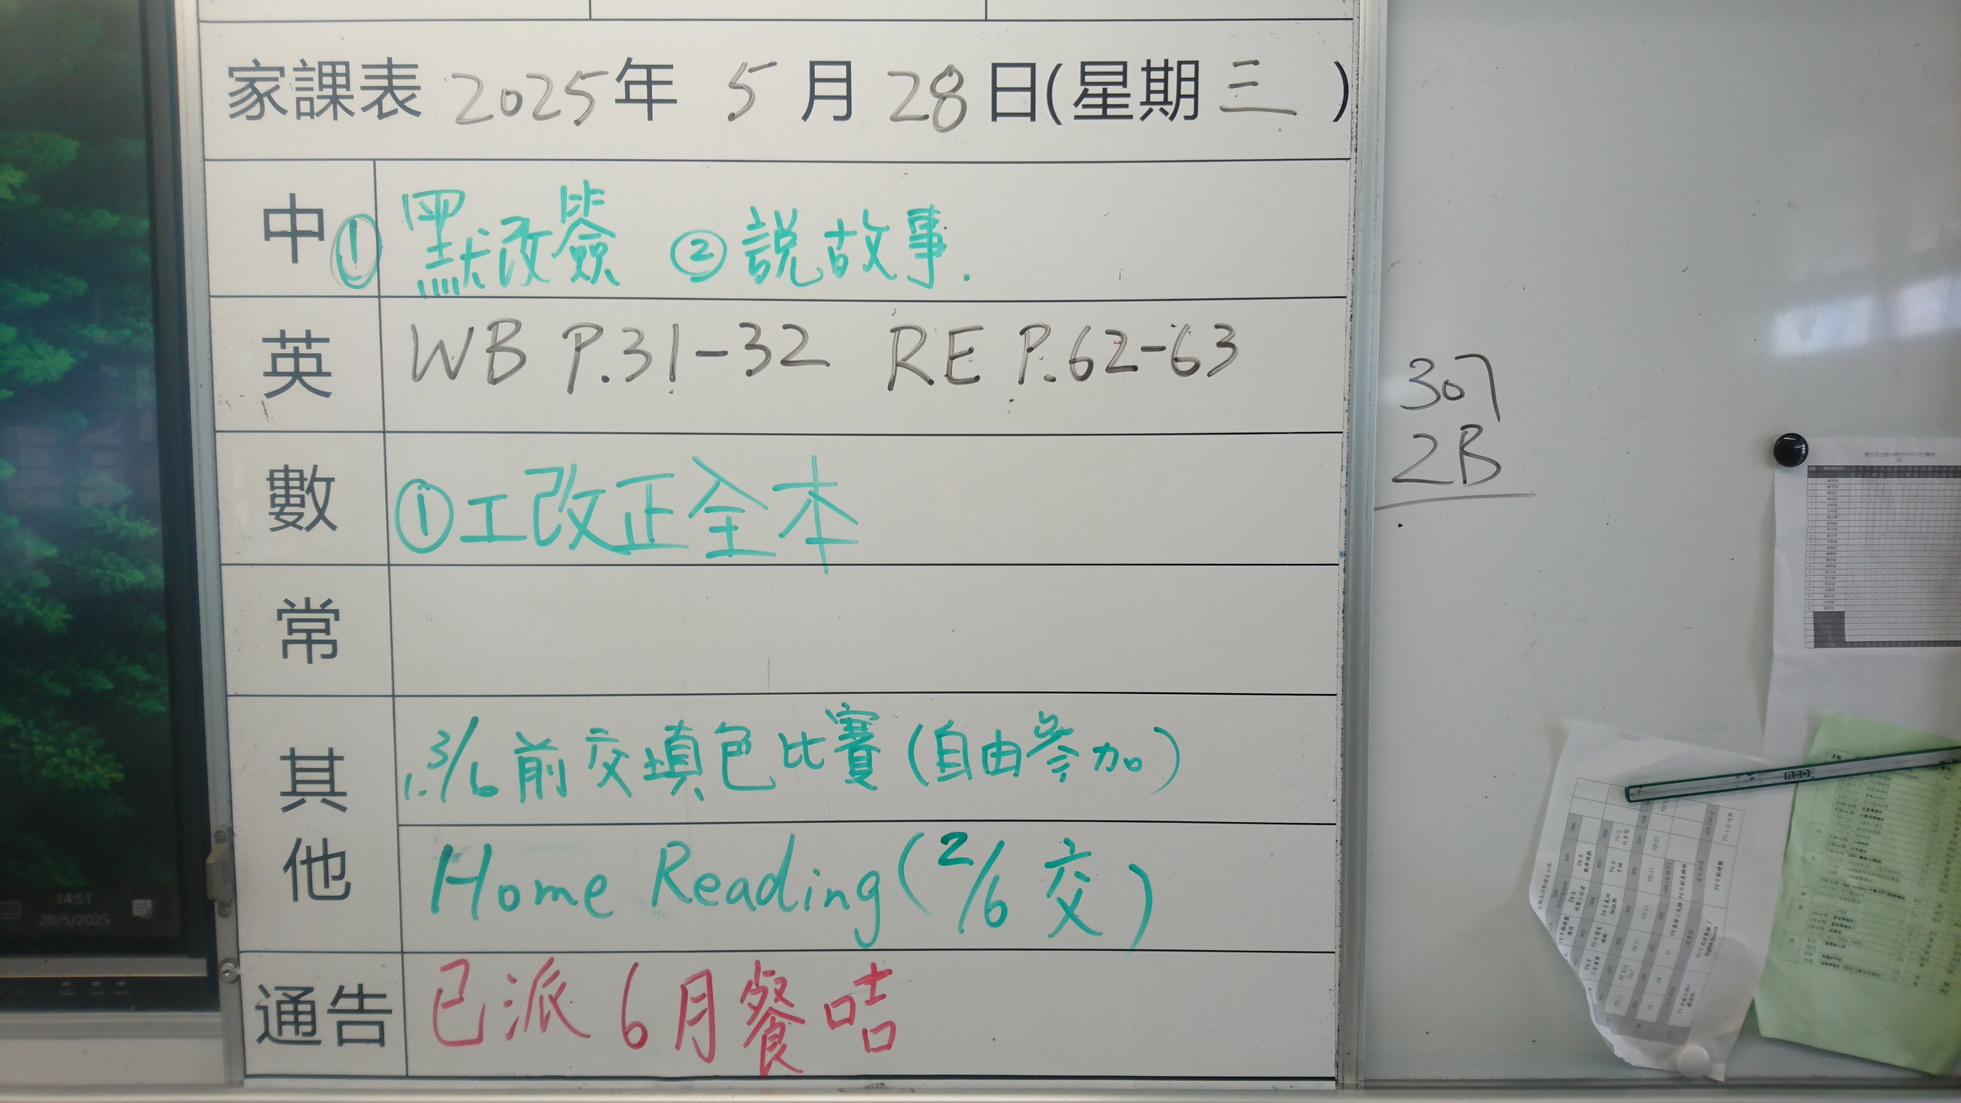 家課表 2025年 5月28日(星期三)
中 ① 默改簽 ② 説故事.
英 WB P.31-32 RE P.62-63
數 ①工改正全本
常
其他 1. 3/6 前交填色比賽(自由參加)
Home Reading(2/6 交)
通告 已派6月餐咭
307
2B
14:51
28/5/2025